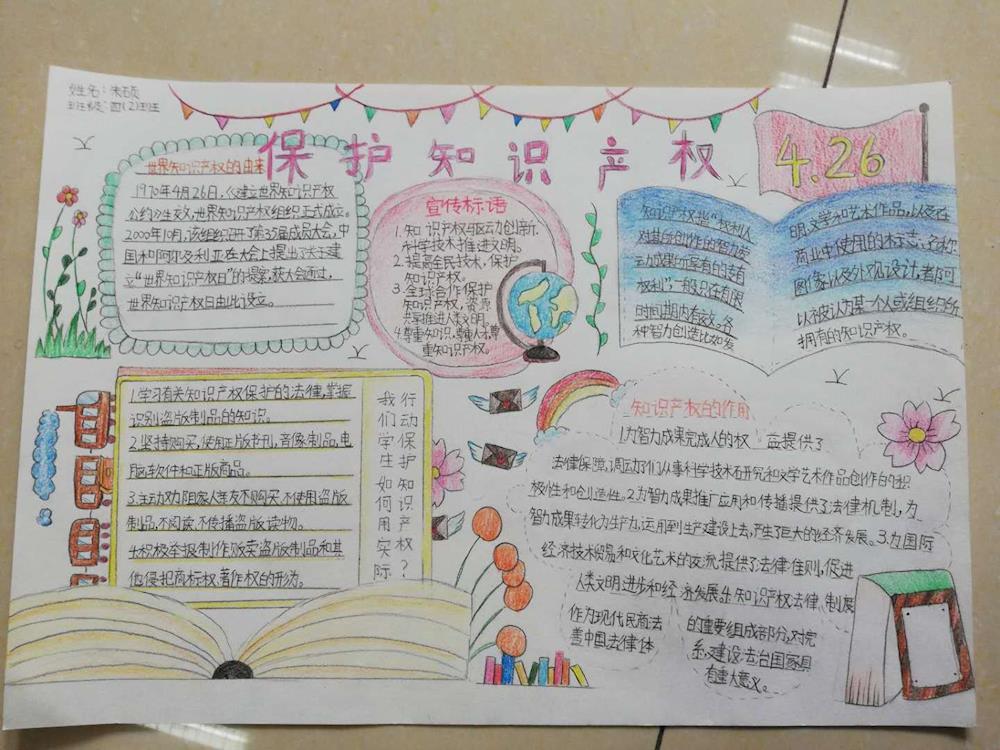 姓名：朱硕
班级：四(2)班
保护知识产权
4.26
世界知识产权的由来
1970年4月26日，《建立世界知识产权
公约》生效，世界知识产权组织正式成立。
2000年10月，该组织召开了第35届成员大会，中
国和阿尔及利亚在大会上提出了关于建
立“世界知识产权日”的提案，获大会通过，
世界知识产权日由此设立。
宣传标语
1.知识产权驱动创新，
科学技术推进文明。
2.提高全民技术，保护
知识产权。
3.全球合作保护
知识产权，资源
共享推进人类文明。
4.尊重知识，尊重人才，尊
重知识产权。
知识产权，指“权利人
对其所创作的智力劳
动成果所享有的专有
权利”，一般只在有限
时间期内有效。各
种智力创造比如发
明，文学和艺术作品，以及在
商业中使用的标志、名称
图像以及外观设计，都可
以被认为某一个人或组织所
拥有的知识产权。
1.学习有关知识产权保护的法律，掌握
识别盗版制品的知识。
2.坚持购买，使用正版书刊，音像制品，电
脑软件和正版商品。
3.主动劝阻家人亲友不购买，不使用盗版
制品，不阅读，不传播盗版读物。
4.积极举报制作贩卖盗版制品和其
他侵犯商标权，著作权的行为。
我们学生如何用实际
行动保护知识产权？
知识产权的作用
1.为智力成果完成人的权益提供了
法律保障，调动了人们从事科学技术研究和文学艺术作品创作的积
极性和创造性。2.为智力成果推广应用和传播提供了法律机制，为
智力成果转化为生产力，运用到生产建设上去，产生了巨大的经济发展。3.为国际
经济技术贸易和文化艺术的交流，提供了法律准则，促进
人类文明进步和经济发展。4.知识产权法律、制度
作为现代民商法的重要组成部分，对完
善中国法律体系，建设法治国家具
有重大意义。